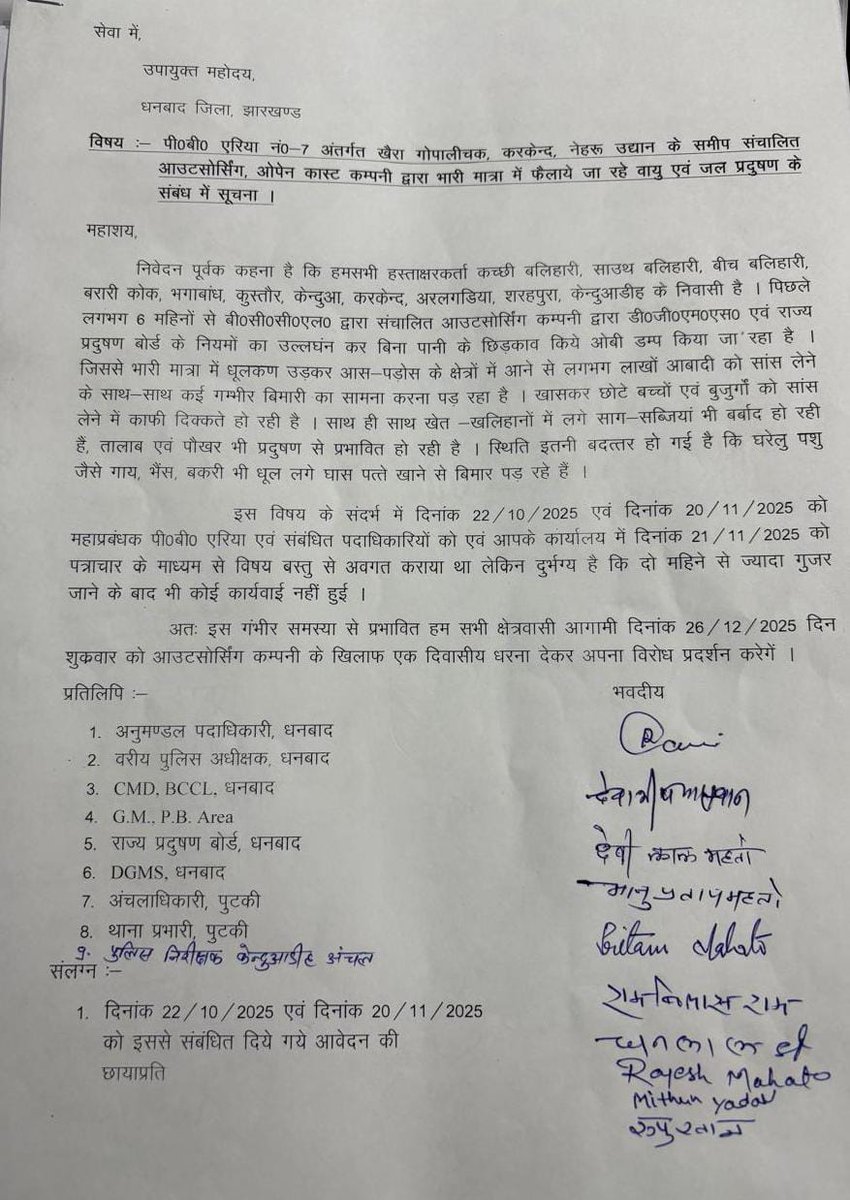 सेवा में,
उपायुक्त महोदय,
धनबाद जिला, झारखण्ड
विषय :- पी0बी0 एरिया नं0-7 अंतर्गत खैरा गोपालीचक, करकेन्द, नेहरू उद्यान के समीप संचालित
आउटसोर्सिंग, ओपेन कास्ट कम्पनी द्वारा भारी मात्रा में फैलाये जा रहे वायु एवं जल प्रदुषण के
संबंध में सूचना ।
महाशय,
निवेदन पूर्वक कहना है कि हमसभी हस्ताक्षरकर्ता कच्छी बलिहारी, साउथ बलिहारी, बीच बलिहारी,
बरारी कोक, भगाबांध, कुस्तौर, केन्दुआ, करकेन्द, अरलगडिया, शरहपुरा, केन्दुआडीह के निवासी है । पिछले
लगभग 6 महिनों से बी0सी0सी0एल0 द्वारा संचालित आउटसोर्सिंग कम्पनी द्वारा डी0जी0एम0एस0 एवं राज्य
प्रदुषण बोर्ड के नियमों का उल्लघंन कर बिना पानी के छिड़काव किये ओबी डम्प किया जा रहा है ।
जिससे भारी मात्रा में धूलकण उड़कर आस-पड़ोस के क्षेत्रों में आने से लगभग लाखों आबादी को सांस लेने
के साथ-साथ कई गम्भीर बिमारी का सामना करना पड़ रहा है । खासकर छोटे बच्चों एवं बुजुर्गों को सांस
लेने में काफी दिक्कते हो रही है । साथ ही साथ खेत -खलिहानों में लगे साग-सब्जियां भी बर्बाद हो रही
हैं, तालाब एवं पौखर भी प्रदुषण से प्रभावित हो रही है । स्थिति इतनी बदत्तर हो गई है कि घरेलु पशु
जैसे गाय, भैंस, बकरी भी धूल लगे घास पत्ते खाने से बिमार पड़ रहे हैं ।
इस विषय के संदर्भ में दिनांक 22/10/2025 एवं दिनांक 20/11/2025 को
महाप्रबंधक पी0बी0 एरिया एवं संबंधित पदाधिकारियों को एवं आपके कार्यालय में दिनांक 21/11/2025 को
पत्राचार के माध्यम से विषय बस्तु से अवगत कराया था लेकिन दुर्भग्य है कि दो महिने से ज्यादा गुजर
जाने के बाद भी कोई कार्यवाई नहीं हुई ।
अतः इस गंभीर समस्या से प्रभावित हम सभी क्षेत्रवासी आगामी दिनांक 26/12/2025 दिन
शुकवार को आउटसोर्सिंग कम्पनी के खिलाफ एक दिवासीय धरना देकर अपना विरोध प्रदर्शन करेगें ।
प्रतिलिपि :-
1. अनुमण्डल पदाधिकारी, धनबाद
2. वरीय पुलिस अधीक्षक, धनबाद
3. CMD, BCCL, धनबाद
4. G.M., P.B. Area
5. राज्य प्रदुषण बोर्ड, धनबाद
6. DGMS, धनबाद
7. अंचलाधिकारी, पुटकी
8. थाना प्रभारी, पुटकी
9. पुलिस निरीक्षक केन्दुआडीह अंचल
संलग्न :-
1. दिनांक 22/10/2025 एवं दिनांक 20/11/2025
को इससे संबंधित दिये गये आवेदन की
छायाप्रति
भवदीय
देवी लाल महतो
भानु प्रताप महतो
Mahato
रामविलास राम
Rajesh Mahato
Mithun Yadav